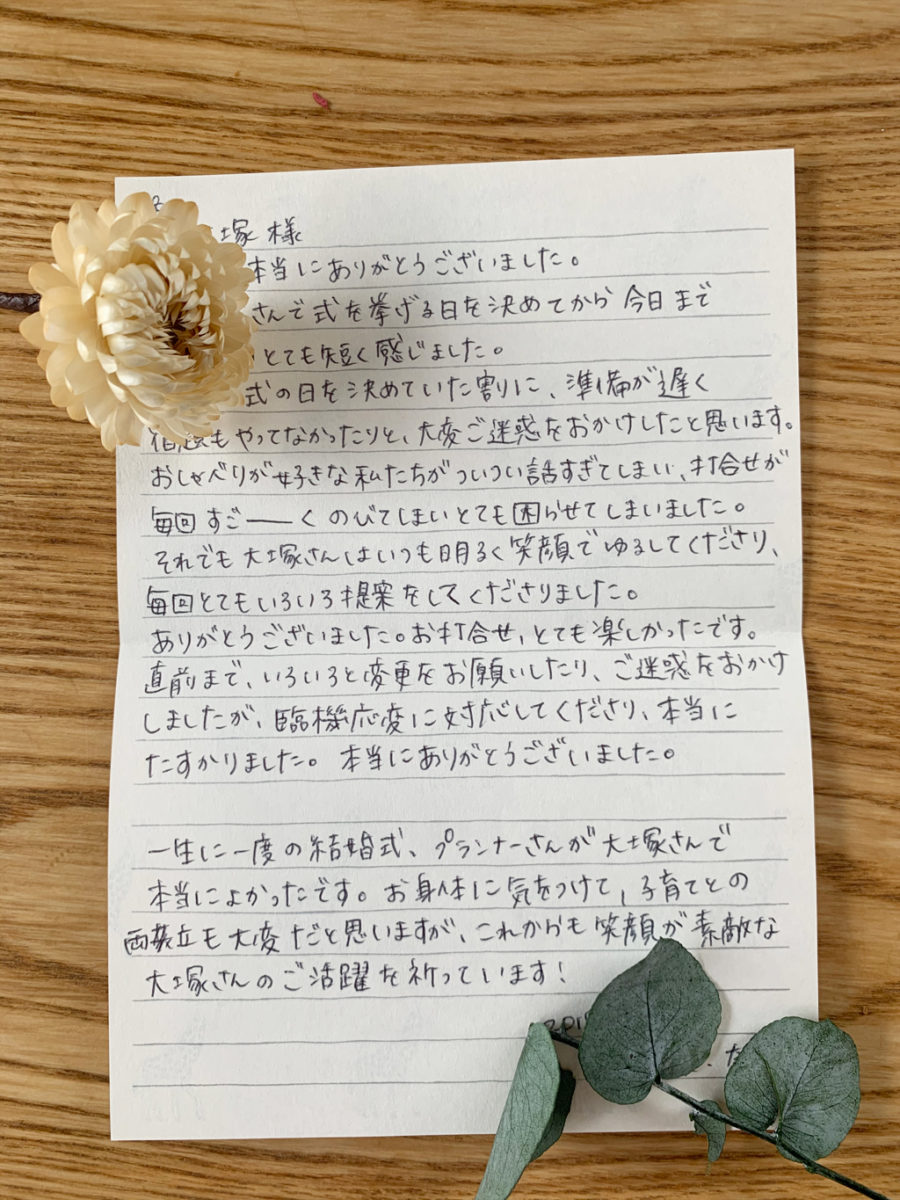 塚様
本当にありがとうございました。
さんで式を挙げる日を決めてから今日まで
とても短く感じました。
式の日を決めていた割に、準備が遅く
宿題もやってなかったりと、大変ご迷惑をおかけしたと思います。
おしゃべりが好きな私たちがついつい話すぎてしまい、打合せが
毎回すご――くのびてしまいとても困らせてしまいました。
それでも大塚さんはいつも明るく笑顔でゆるしてくださり、
毎回とてもいろいろ提案をしてくださりました。
ありがとうございました。お打合せ、とても楽しかったです。
直前まで、いろいろと変更をお願いしたり、ご迷惑をおかけ
しましたが、臨機応変に対応してくださり、本当に
たすかりました。本当にありがとうございました。
一生に一度の結婚式、プランナーさんが大塚さんで
本当によかったです。お身体に気をつけて、子育てとの
両立も大変だと思いますが、これからも笑顔が素敵な
大塚さんのご活躍を祈っています!